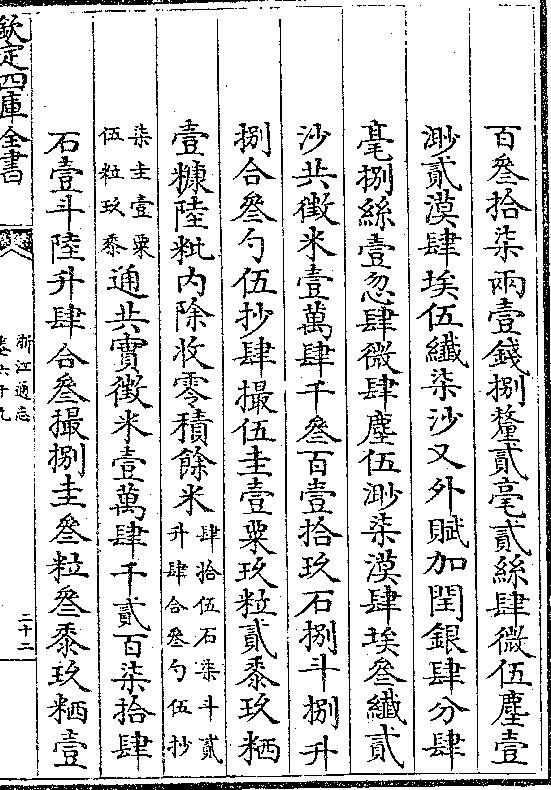 百叄拾柒兩壹錢捌釐貳毫貳絲肆微伍塵壹
渺貳漠肆埃伍纖柒沙又外賦加閏銀肆分肆
毫捌絲壹忽肆微肆塵伍渺柒漠肆埃叄纖貳
沙共徵米壹萬肆千叄百壹拾玖石捌斗捌升
捌合叄勺伍抄肆撮伍圭壹粟玖粒貳黍玖粞
壹糠陸粃內除收零積餘米肆拾伍石柒斗貳
升肆合叄勺伍抄
柒圭壹粟
伍粒玖黍通共實徵米壹萬肆千貳百柒拾肆
石壹斗陸升肆合叄撮捌圭叄粒叄黍玖粞壹
欽定四庫全書
浙江通志
卷六十九
二十二